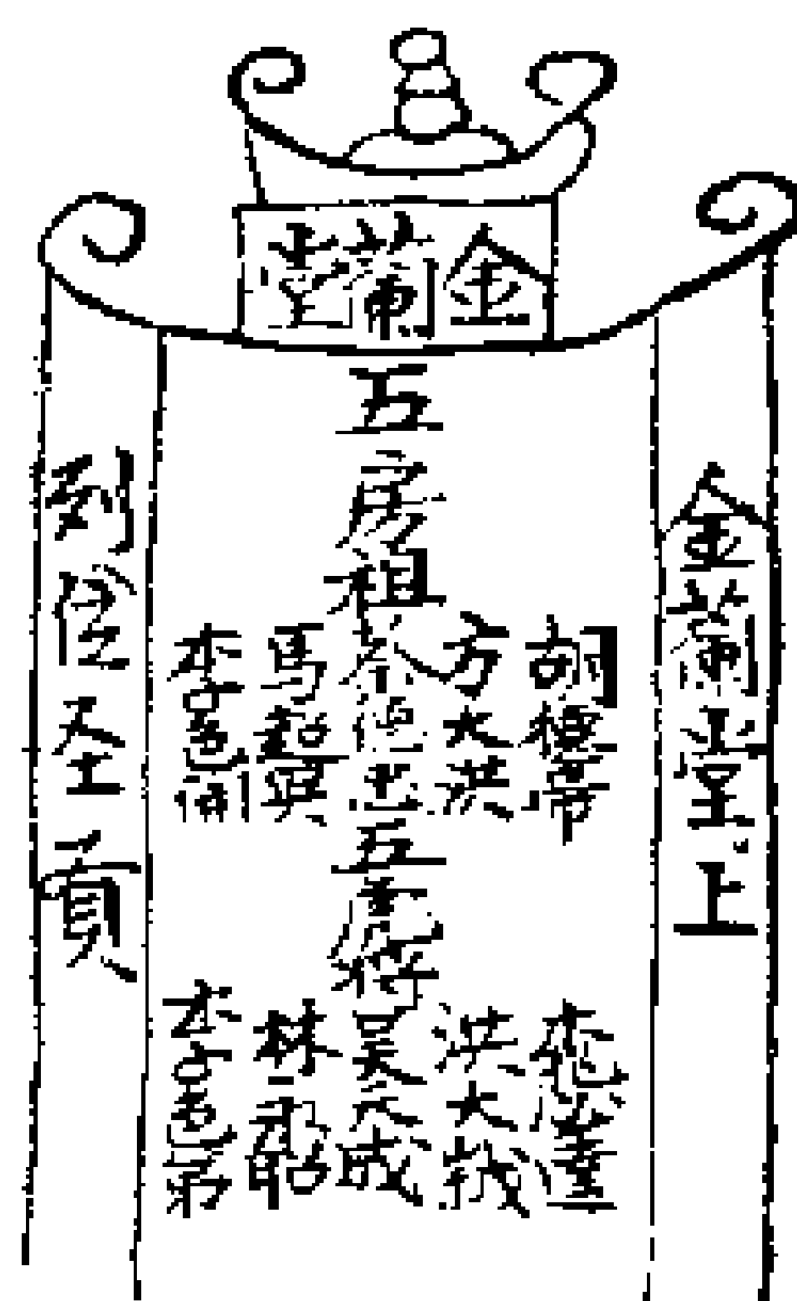 金蘭堂
金蘭堂上
五房祖
胡德帝
方大洪
蔡德忠
馬超興
李色開
五虎將
洪大
吳天成
林永昭
李色弟
位全